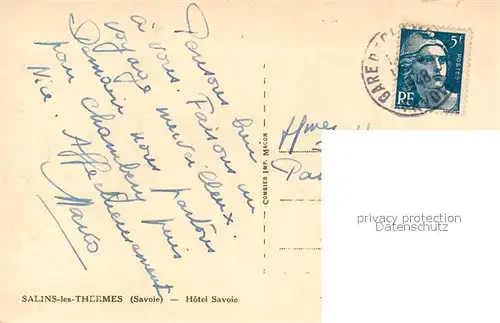 Pensons bien
à vous. Faisons un
voyage merveilleux.
Demain nous partons
pour Chambéry puis
Nice. Affectueusement
SALINS-les-THERMES (Savoie) — Hôtel Savoie
COMBIER IMP. MACON
GARE
5F
POSTES
RF
privacy protection
www.delcampe.net